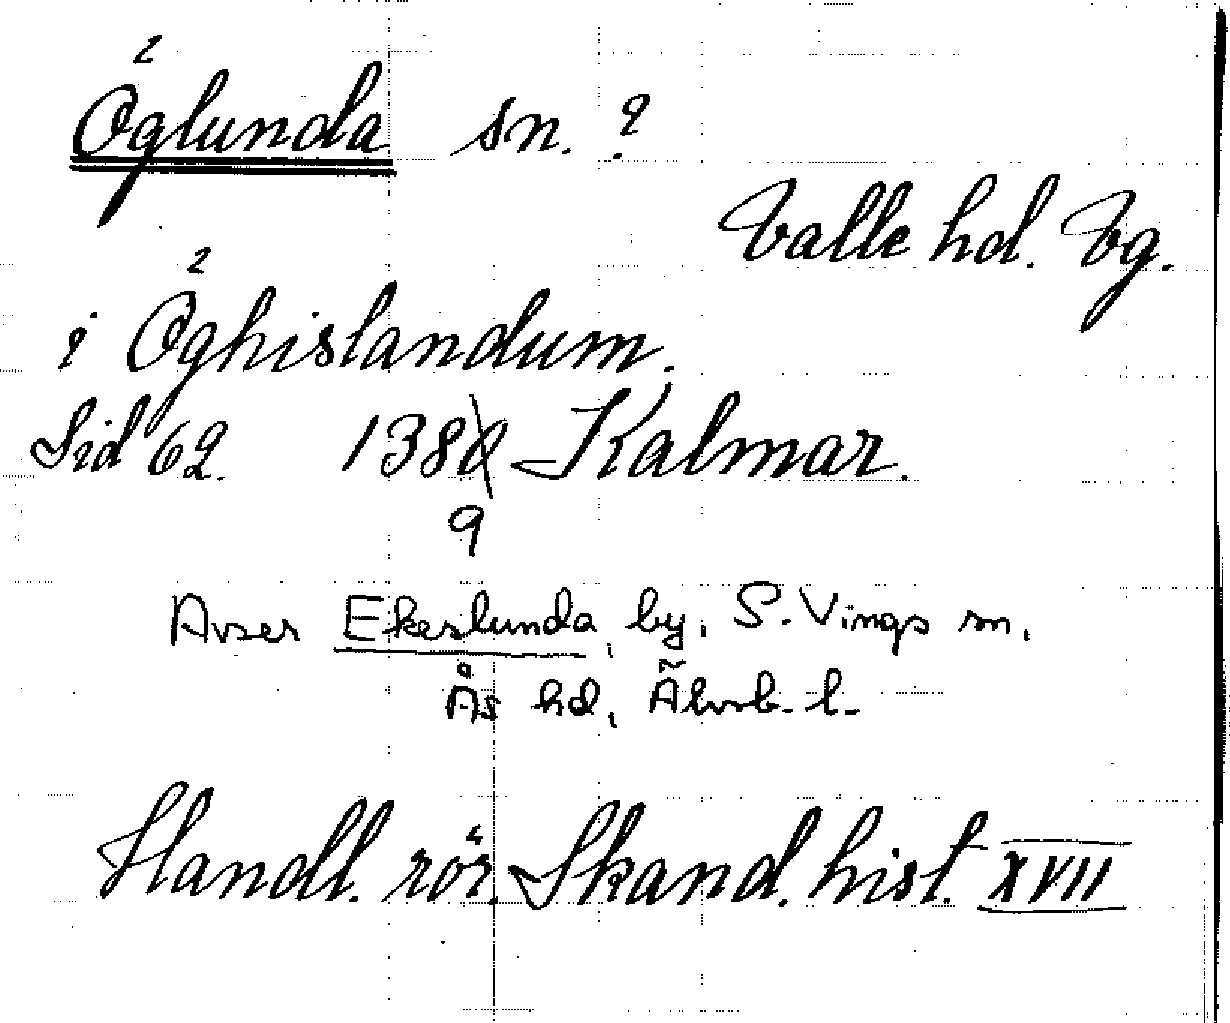 Öglunda sn. ?
Valle hd. Vg.
i Öghislandum.
Sid 62. 1380 Kalmar.
9
Avser Ekeslunda, by, S. Vings sn,
Ås hd, Älvsb. l.
Handl. rör. Skand. hist. XVII